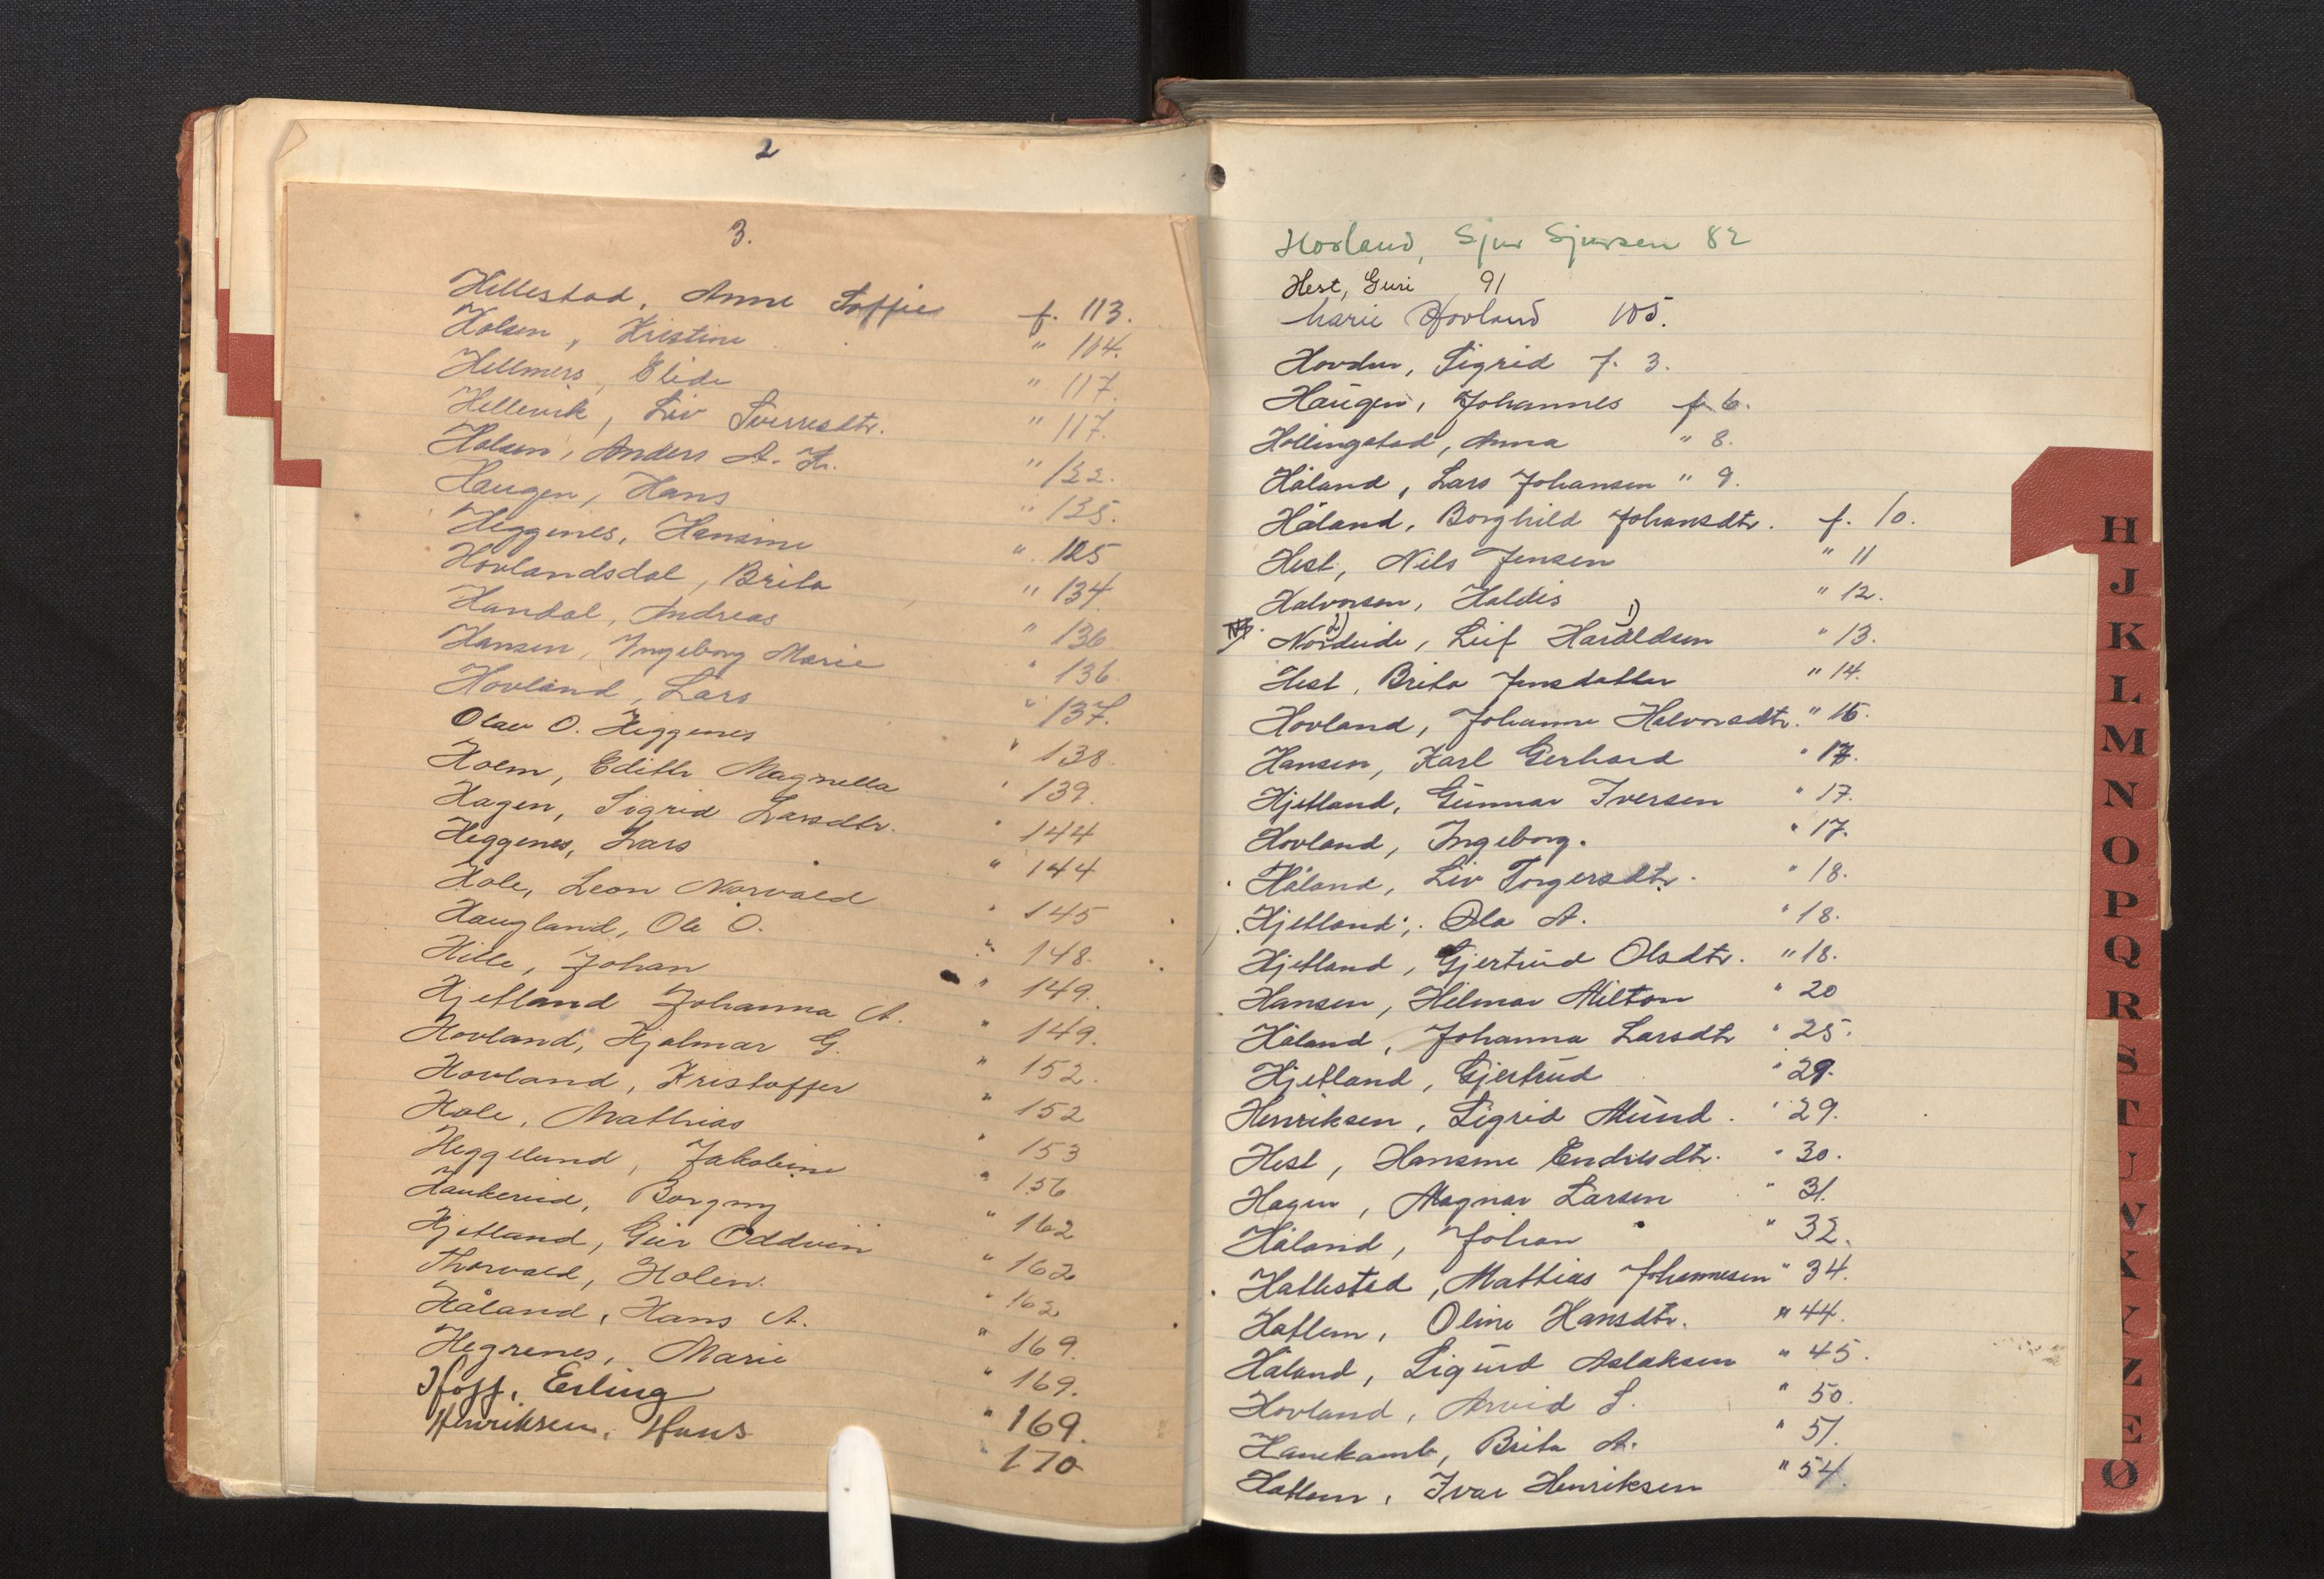 2
3.
Hillestad, Anne Soffie f. 113.
Holsen, Kristine " 104.
Hellmers, Elide " 117.
Hellevik, Liv Sverresdtr. " 117.
Holsen, Anders A. Kr. " 122.
Haugen, Hans " 125.
Heggenes, Hansine " 125
Hovlandsdal, Brita " 134
Handal, Andreas " 136
Hansen, Ingeborg Marie " 136.
Hovland, Lars " 137.
Olav O. Heggenes " 138.
Holm, Edith Magnella " 139.
Hagen, Sigrid Larsdtr. " 144
Heggenes, Lars " 144
Hole, Leon Norvald " 145
Haugland, Ole O. " 148.
Hille, Johan " 149.
Hjetland Johanna A. " 149.
Hovland, Hjalmar G. " 152.
Hovland, Kristoffer " 152
Hole, Mathias " 153
Heggelund, Jakobine " 156
Haukereid, Borgny " 162
Hjetland, Geir Oddvin " 162
Thorvald, Holen. " 162
Håland, Hans A. " 169.
Hegrenes, Marie " 169.
Hoff, Erling " 169.
Henriksen, Hans " 170
Hovland, Sjur Sjursen 82
Hest, Guri 91
Marie Hovland 105.
Hovden, Sigrid f. 3.
Haugen, Johannes f. 6.
Hollingstad, Anna " 8.
Håland, Lars Johansen " 9.
Håland, Borghild Johansdtr. f. 10.
Hest, Nils Jensen " 11
Halvorsen, Haldis " 12.
Nordeide, 2) Leif Haraldsen 1) " 13.
Hest, Brita Jensdatter " 14.
Hovland, Johanne Halvorsdtr. " 15.
Hansen, Karl Gerhard " 17.
Hjetland, Gunnar Iversen " 17.
Hovland, Ingeborg. " 17.
Håland, Liv Torgersdtr. " 18.
Hjetland, Ola A. " 18.
Hjetland, Gjertrud Olsdtr. " 18.
Hansen, Hilmar Milton " 20
Håland, Johanna Larsdtr " 25.
Hjetland, Gjertrud " 29.
Henriksen, Sigrid Mund. " 29.
Hest, Hansine Endresdtr. " 30.
Hagen, Magnar Larsen " 31.
Håland, Johan " 32.
Hallestad, Mathias Johannesen " 34.
Hatlem, Oline Hansdtr. " 44.
Håland, Sigurd Aslaksen " 45.
Hovland, Arvid S. " 50.
Hanekamb, Brita A. " 51.
Hatlem, Ivar Henriksen " 54.
H
J
K
L
M
N
O
P
Q
R
S
T
U
V
X
Y
Z
Æ
Ø